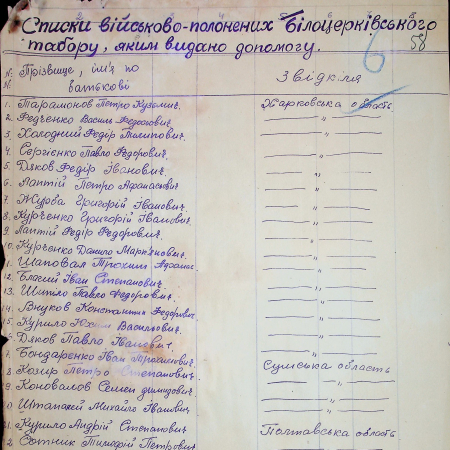 Списки військово-полонених Білоцерківського
табору, яким видано допомогу. 58
N: Прізвище, ім'я по Звідкіля
N. батькові
1. Тарамонов Петро Кузьмич. Харковська область
2. Федченко Василь Федосович
3. Холодний Федір Пилипович. "
4. Сергієнко Павло Федорович. "
5. Дяков Федір Іванович. "
6. Лаптій Петро Афанасієвич "
7. Журба Григорій Іванович. "
8. Курченко Григорій Іванович. "
9. Лаптій Федір Федорович. "
10. Курченко Данило Марк'янович. "
Шаповал Трохим "
12. Власий Іван Степанович "
13. Шитло Павло Федорович. "
14. Внуков Константин Федорович. "
15. Курило Юхим Васильович. "
Дяков Павло Іванович "
7. Бондаренко Іван "
8 Козир Петро Степанович. Сумська область
9. Коновалов Семен Димидович "
10 Михайло Іванович "
1. Курило Андрій Степанович Полтавська область
2 Сотник Тимофій Петрович "